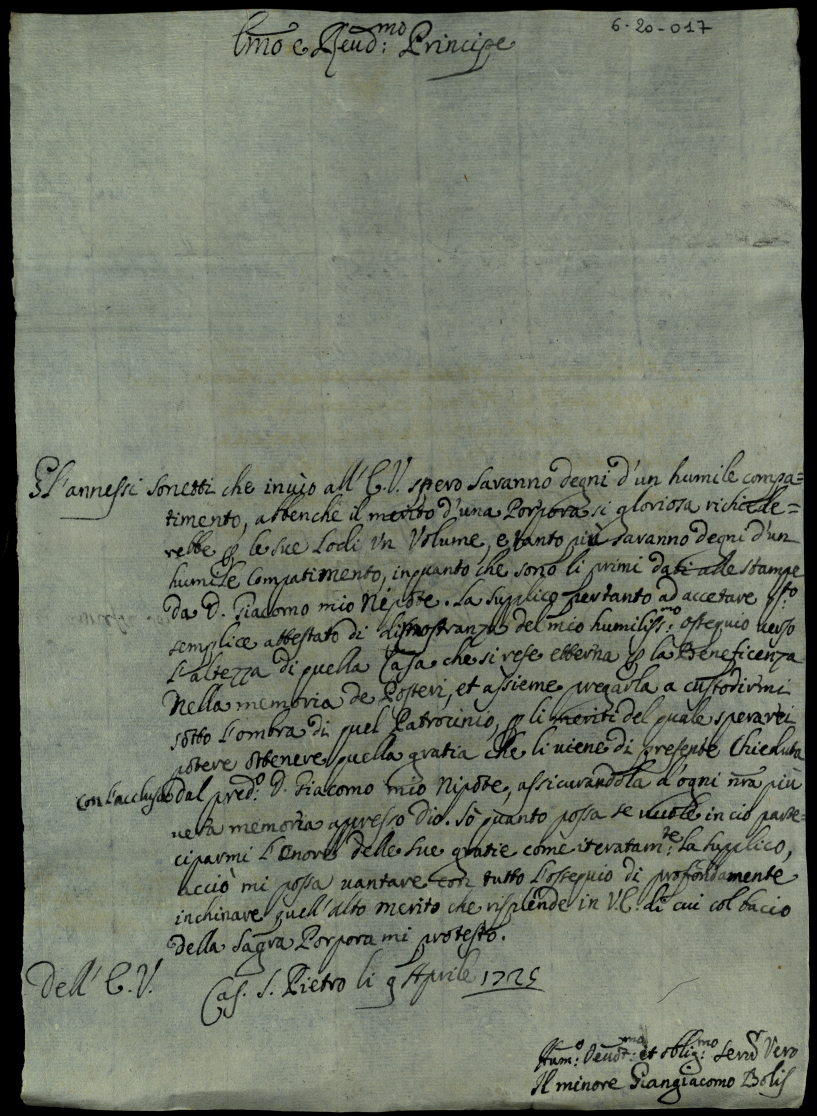 6-20-017
Emo e Reud:mo Principe
L'annessi sonetti che inuio all'E.V. spero saranno degni d'un humile compa=
timento, abbenche il merito d'una Porpora si gloriosa richiede=
rebbe ꝑ le sue Lodi Vn Volume, e tanto più saranno degni d'un
humile Compatimento, inquanto che sono li primi dati alle stampe
da D. Giacomo mio Nipote. La supplico pertanto ad accetare qto:
semplice attestato di dimostranza del mio humiliss:mo ossequio uerso
L'altezza di quella Casa che si rese etterna ꝑ la Beneficenza
Nella memoria de Posteri, et assieme pregarla a custodirmi
sotto L'ombra di quel Patrocinio, ꝑ li meriti del quale sperarei
potere ottenere quella gratia che li uiene di presente Chieduta
con l'acclusa dal pred:o D. Giacomo mio Nipote, assicurandola d'ogni nra più
uera memoria appresso Dio. Sò quanto possa se uuole in ciò parte=
ciparmi L'Onore delle sue gratie come iteratam:te La supplico,
acciò mi possa uantare con tutto L'ossequio di profondamente
inchinare quell'alto merito che risplende in V.E. di cui col bacio
della Sagra Porpora mi protesto.
Dell'E.V.
Cas. S. Pietro li 9 Aprile 1725
Hum:o Deuot:mo et oblig:mo Serud Vero
Il minore Giangiacomo Bolis